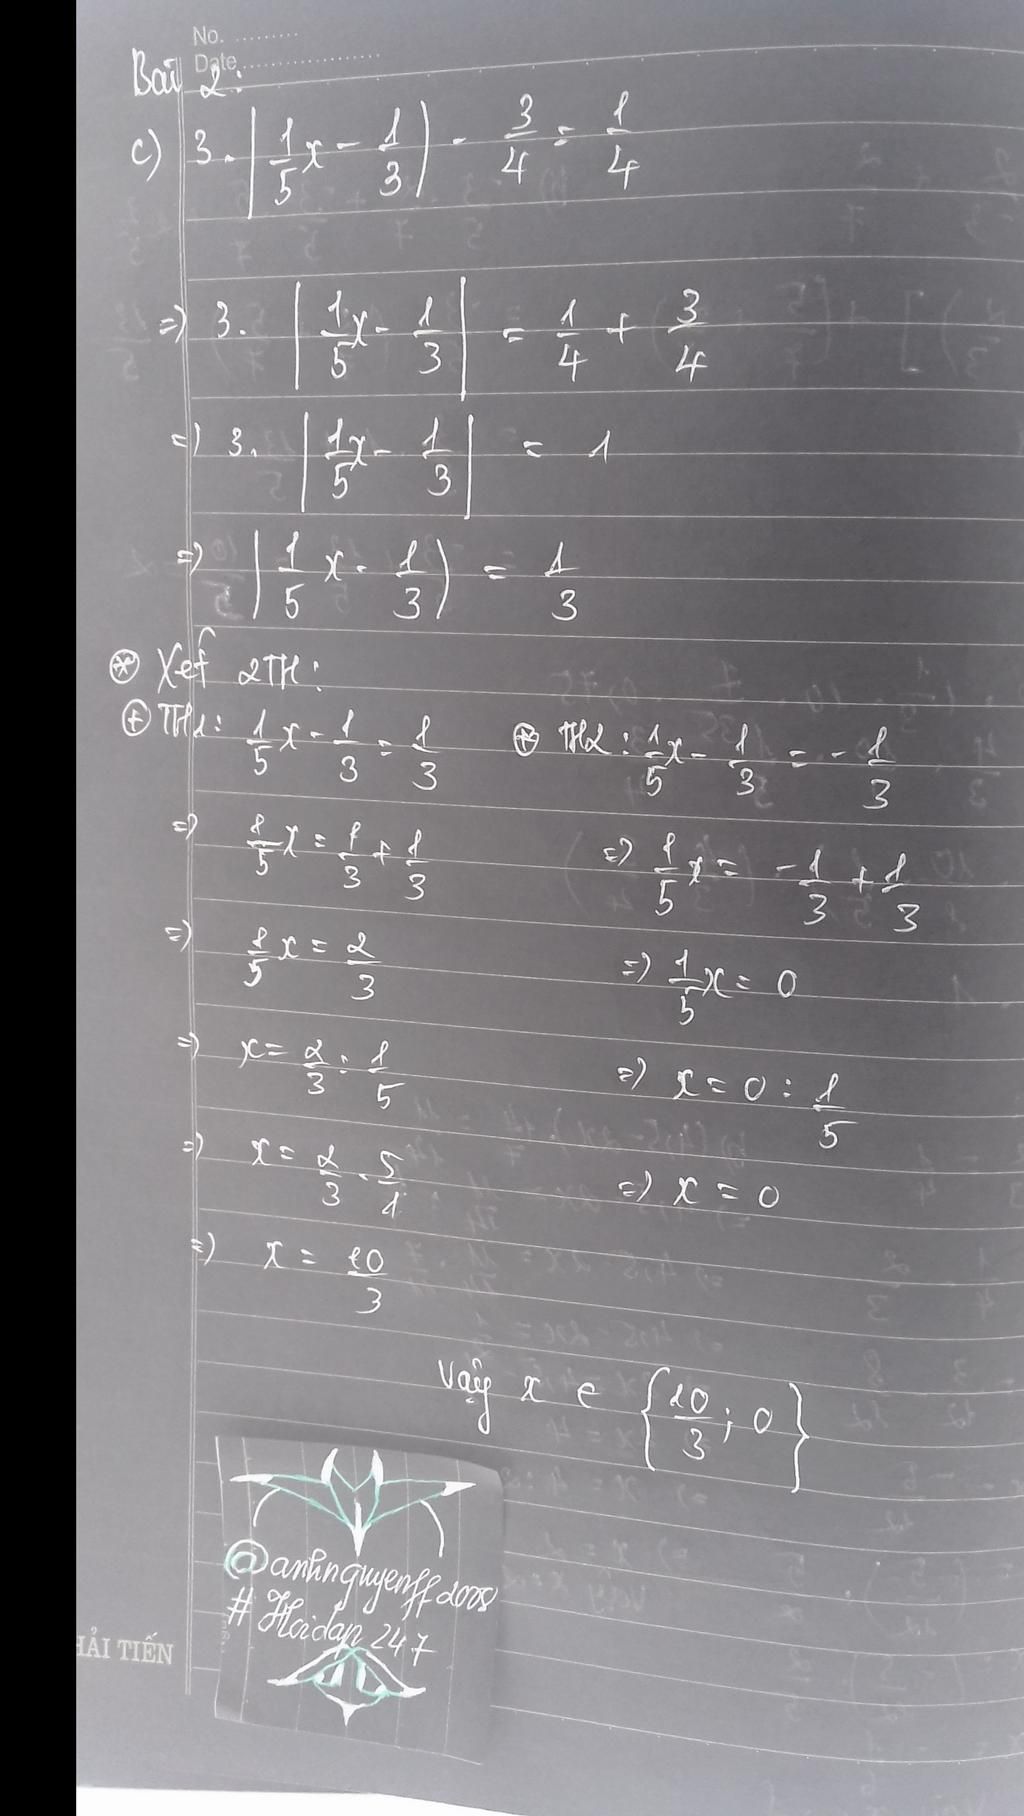 No. .........
Date ..................
Bài 2:
c) 3 . |1/5 x - 1/3| - 3/4 = 1/4
=> 3 . |1/5 x - 1/3| = 1/4 + 3/4
=> 3 . |1/5 x - 1/3| = 1
=> |1/5 x - 1/3| = 1/3
⊛ Xét 2TH:
⊕ TH1: 1/5 x - 1/3 = 1/3
=> 1/5 x = 1/3 + 1/3
=> 1/5 x = 2/3
=> x = 2/3 : 1/5
=> x = 2/3 . 5/1
=> x = 10/3
⊕ TH2: 1/5 x - 1/3 = - 1/3
=> 1/5 x = -1/3 + 1/3
=> 1/5 x = 0
=> x = 0 : 1/5
=> x = 0
Vậy x ∈ {10/3 ; 0}
@anhnguyenff2008
# Hoidap 247
HẢI TIẾN